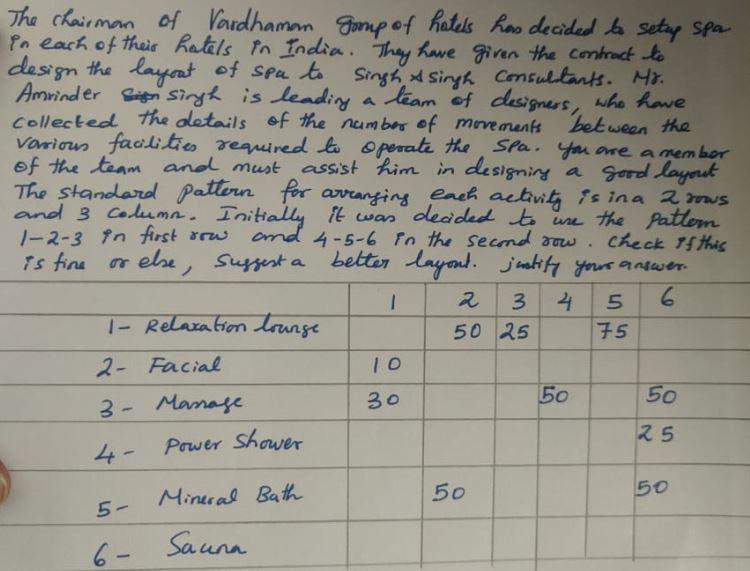 The chairman of Vardhaman Group of hotels has decided to setup spa
in each of their hotels in India. They have given the contract to
design the layout of spa to Singh & Singh Consultants. Mr.
Amrinder Singh is leading a team of designers, who have
collected the details of the number of movements between the
various facilities required to operate the Spa. you are a member
of the team and must assist him in designing a good layout
The standard pattern for arranging each activity is in a 2 rows
and 3 column. Initially it was decided to use the pattern
1-2-3 in first row and 4-5-6 in the second row. Check if this
is fine or else, suggest a better layout. justify your answer.
1 2 3 4 5 6
1- Relaxation lounge 50 25 75
2- Facial 10
3- Massage 30 50 50
4- Power Shower 25
5- Mineral Bath 50 50
6- Sauna